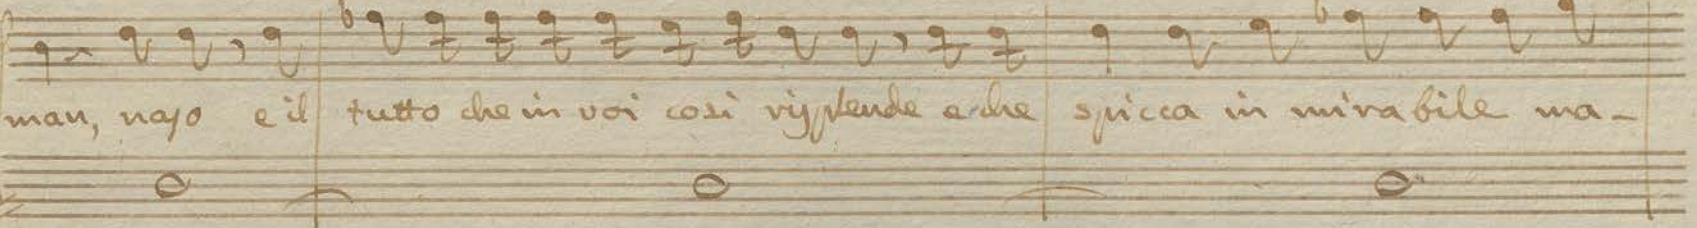 man, naso e il tutto che in voi così risplende e che spicca in mirabile ma-